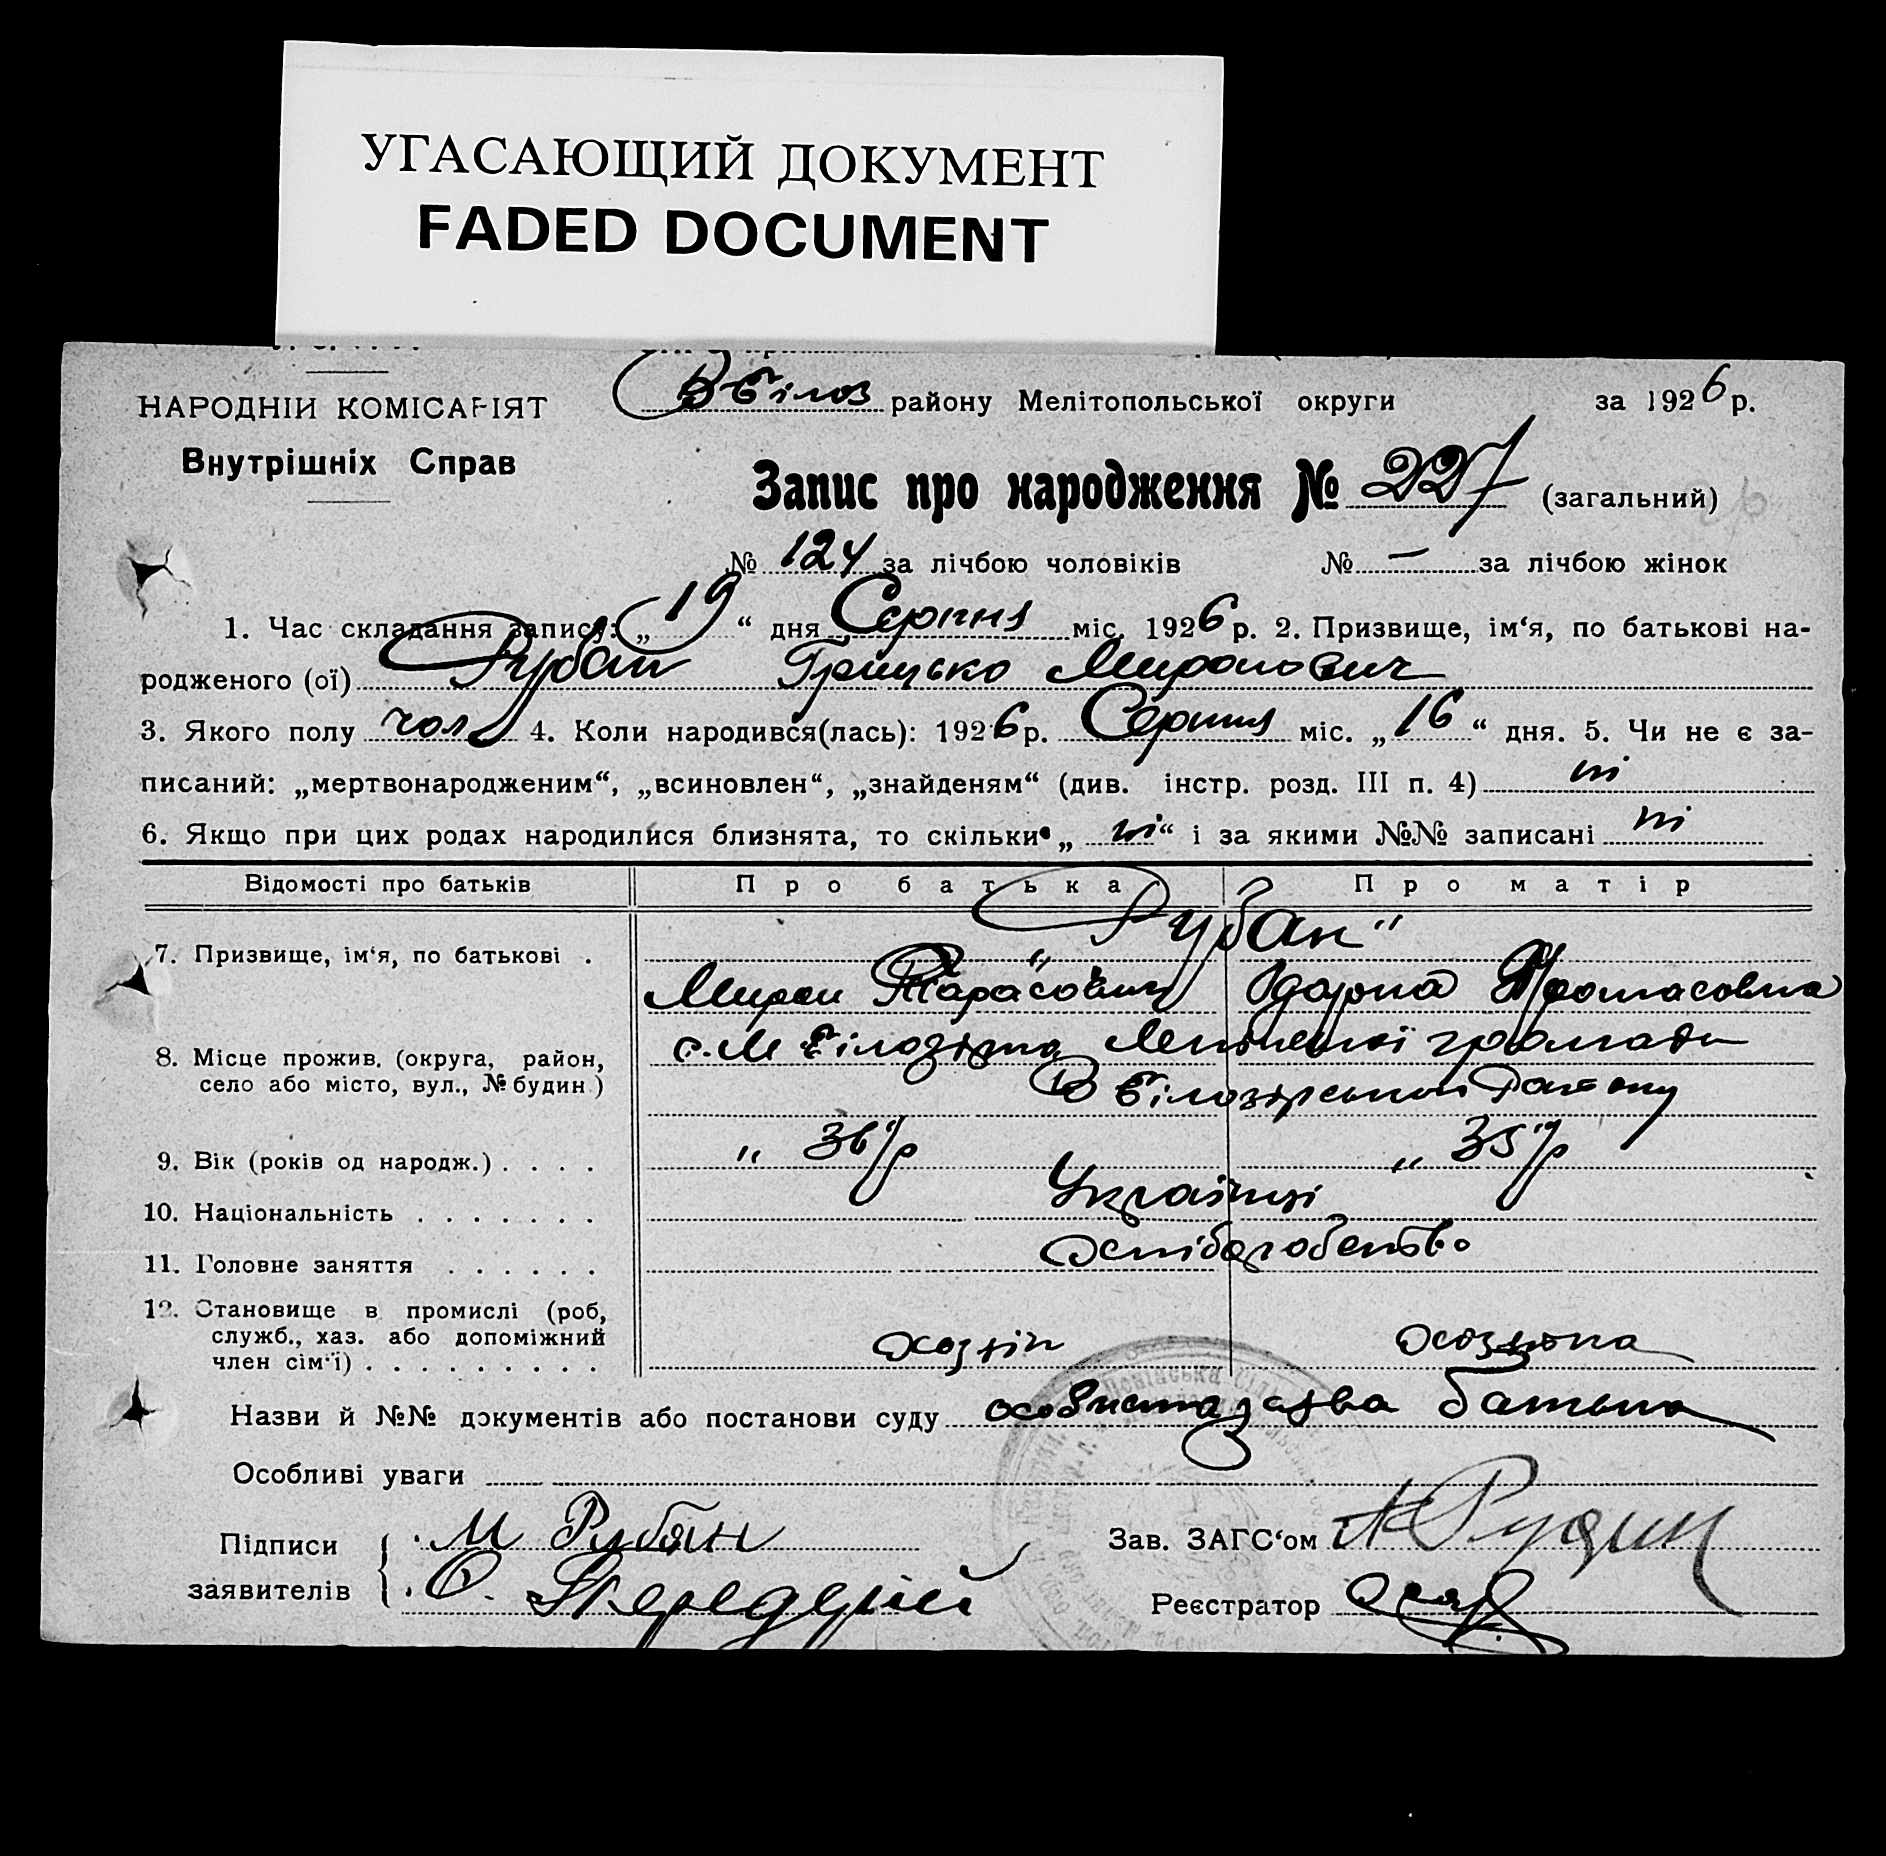 УГАСАЮЩИЙ ДОКУМЕНТ
FADED DOCUMENT
НАРОДНІЙ КОМІСАРІЯТ
Внутрішніх Справ
ВБілоз району Мелітопольської округи за 1926 р.
Запис про народження № 227 (загальний)
№ 124 за лічбою чоловіків № — за лічбою жінок
1. Час складання запису: „19“ дня Серпня міс. 1926 р. 2. Призвище, ім‘я, по батькові на-
родженого (ої) Рубан Грицько Миронович
3. Якого полу чол 4. Коли народився(лась): 1926 р. Серпня міс. „16“ дня. 5. Чи не є за-
писаний: „мертвонародженим“, „всиновлен“, „знайденям“ (див. інстр. розд. III п. 4) ні
6. Якщо при цих родах народилися близнята, то скільки „ні“ і за якими №№ записані ні
Відомості про батьків Про батька Про матір
Рубан"
7. Призвище, ім‘я, по батькові .
Мирон Тарасович Одарка Протасовна
8. Місце прожив. (округа, район,
село або місто, вул., № будин.)
с. М Білозірка громади
В Білозірського Району
9. Вік (років од народж.) . . . . " 36 р " 35 р
10. Національність . . . . . . . Українці
11. Головне заняття . . . . . . Хліборобство
12. Становище в промислі (роб,
служб., хаз. або допоміжний
член сім‘ї) . . . . . . . . . хозяін хозяйка
Назви й №№ документів або постанови суду особиста заява батька
Особливі уваги
Підписи М Рубан Зав. ЗАГС‘ом
заявителів О. Передерій Реєстратор